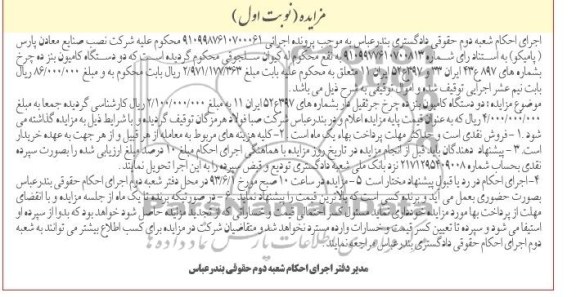 مزایده (نوبت اول)
اجرای احکام شعبه دوم حقوقی دادگستری بندرعباس به موجب پرونده اجرائی ۹۱۰۹۹۸۷۶۱۰۷۰۰۰۶۱ محکوم علیه شرکت نصب صنایع معادن پارس
( پامیکو) به استناد رای شماره ۹۱۰۹۹۷۷۶۱۰۷۰۰۸۱۳ به نفع محکوم له کیوان سلجوقی محکوم گردیده است که دو دستگاه کامیون بنز ده چرخ
بشماره های ۸۹۷ع۴۳ ایران ۳۳ و ۳۹۷ع۵۲ ایران ۱۱ متعلق به محکوم علیه بابت مبلغ ۲/۹۷۱/۱۷۷/۳۶۳ ریال بابت محکوم به و مبلغ ۸۶/۰۰۰/۰۰۰ ریال
بابت نیم عشر اجرایی توقیف شده اموال توقیفی به شرح ذیل می باشد.
موضوع مزایده : دو دستگاه کامیون بنز ده چرخ جرثقیل دار بشماره های ۳۹۷ع۵۲ ایران ۱۱ به مبلغ ۲/۱۰۰/۰۰۰/۰۰۰ ریال کارشناسی گردیده جمعا به مبلغ
۴/۰۰۰/۰۰۰/۰۰۰ ریال که به عنوان قیمت پایه مزایده اعلام و در بندرعباس شرکت صبا فولاد هرمزگان توقیف گردیده و با شرایط ذیل به مزایده گذاشته می
شود .۱- فروش نقدی است و حداکثر مهلت پرداخت بهاء یک ماه است .۲- کلیه هزینه های مربوط به معامله از هر قبیل و از هر جهت به عهده خریدار
است. ۳- پیشنهاد دهندگان باید قبل از انجام مزایده در تاریخ روز مزایده با هماهنگی اجرای احکام مبلغ ۱۰ درصد مبلغ ارزیابی شده را بصورت سپرده
نقدی بحساب شماره ۲۱۷۱۲۹۵۴۰۹۰۰۸ نزد بانک ملی شعبه دادگستری تودیع و قبض سپرده را به این اجرا تحویل نمایند.
۴-اجرای احکام در رد یا قبول پیشنهاد مختار است ۵- مزایده در ساعت ۱۰ صبح مورخ ۹۳/۶/۲ در محل دفتر شعبه دوم اجرای احکام حقوقی بندرعباس
بصورت حضوری بعمل می آید و برنده کسی است که بالاترین قیمت را پیشنهاد نماید. ۶- در صورتیکه برنده تا یک ماه از جلسه مزایده و با انقضای
مهلت از پرداخت بها مورد مزایده خودداری نماید مسئول خواهد بود که بدوا از سپرده او
استیفا می شود و سپرده تا تعیین کسر قیمت و خسارات وارده مسترد نخواهد شد و متقاضیان شرکت در مزایده برای کسب اطلاع بیشتر می توانند به شعبه
دوم اجرای احکام حقوقی دادگستری بندرعباس مراجعه نمایند.
مدیر دفتر اجرای احکام شعبه دوم حقوقی بندرعباس